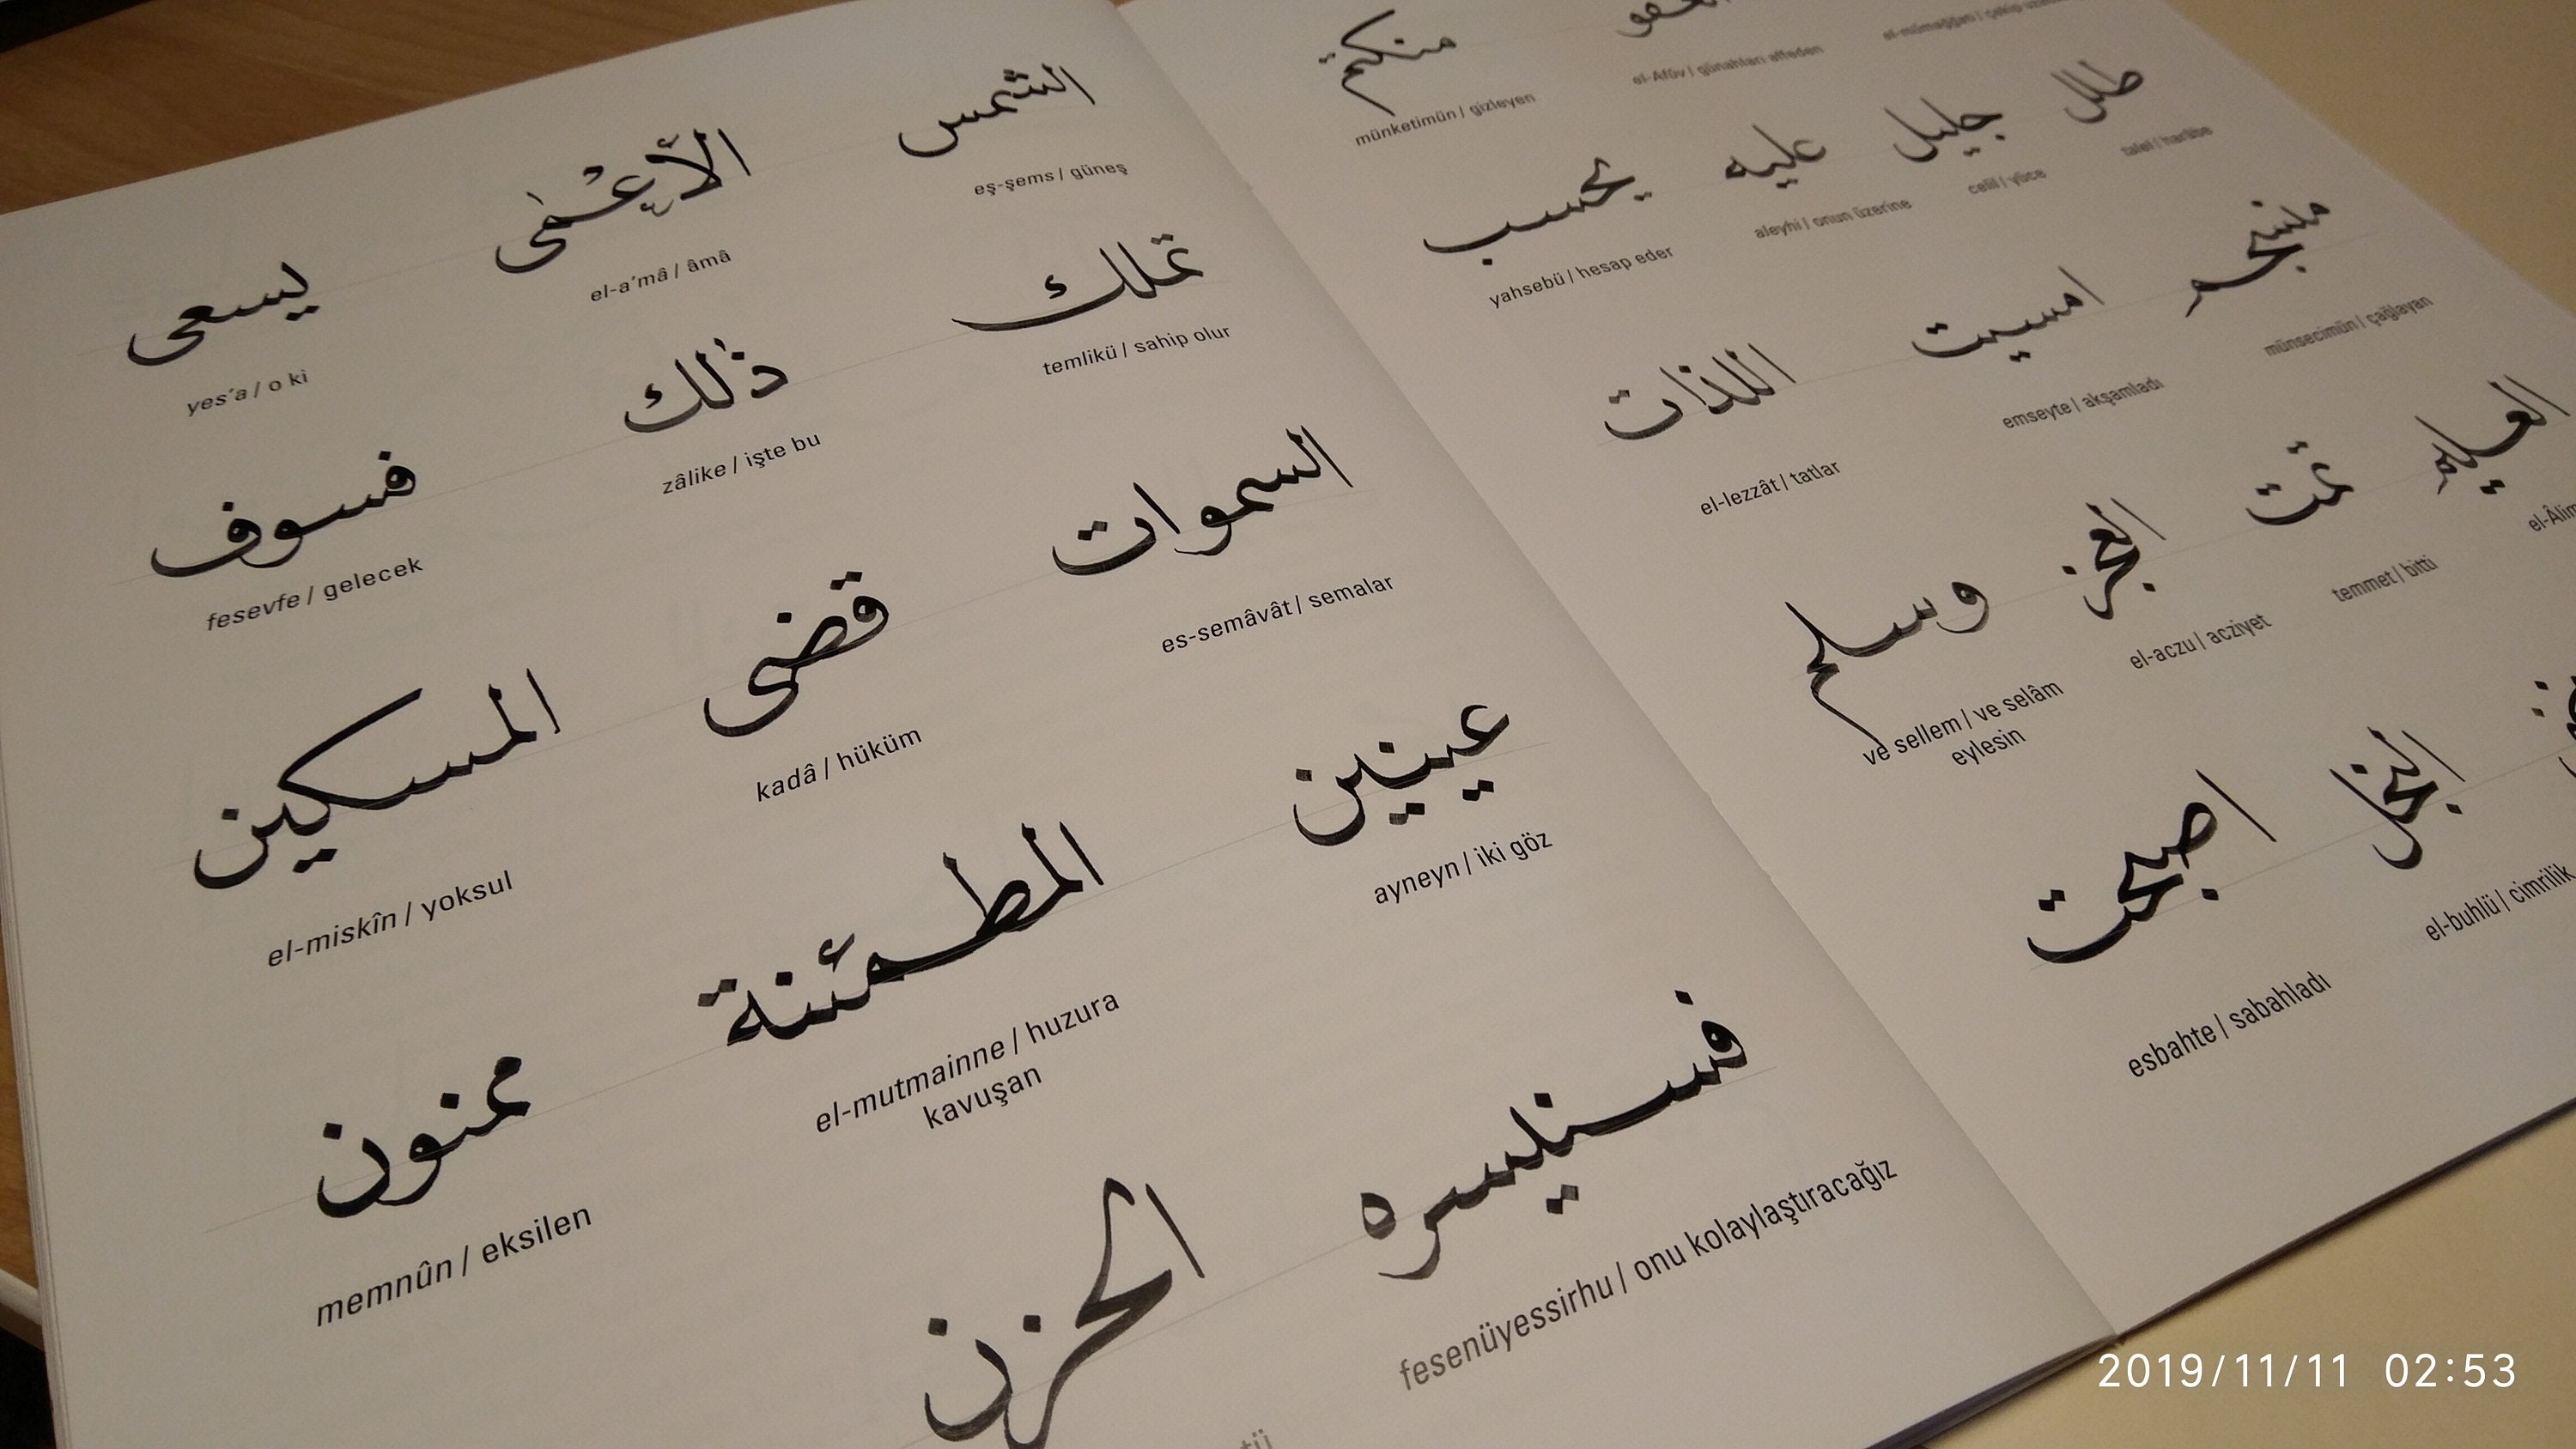 الشمس الأعمى يسعى
eş-şems / güneş el-a'mâ / âmâ yes'a / o ki
تملك ذلك فسوف
temlikü / sahip olur zâlike / işte bu fesevfe / gelecek
السموات قضى المسكين
es-semâvât / semalar kadâ / hüküm el-miskîn / yoksul
عينين المطمئنة ممنون
ayneyn / iki göz el-mutmainne / huzura kavuşan memnûn / eksilen
فسنيسره الحزن
fesenüyessirhu / onu kolaylaştıracağız
منكتم
el-Afüv / günahları affeden münketimün / gizleyen
طلل جليل عليه يحسب
talel / harabe celîl / yüce aleyhi / onun üzerine yahsebü / hesap eder
منسجم امسيت اللذات
münsecimün / çağlayan emseyte / akşamladı el-lezzât / tatlar
العليم تمت العجز وسلم
temmet / bitti el-aczu / acziyet ve sellem / ve selâm eylesin
البخل اصبحت
el-buhlü / cimrilik esbahte / sabahladı
2019/11/11 02:53